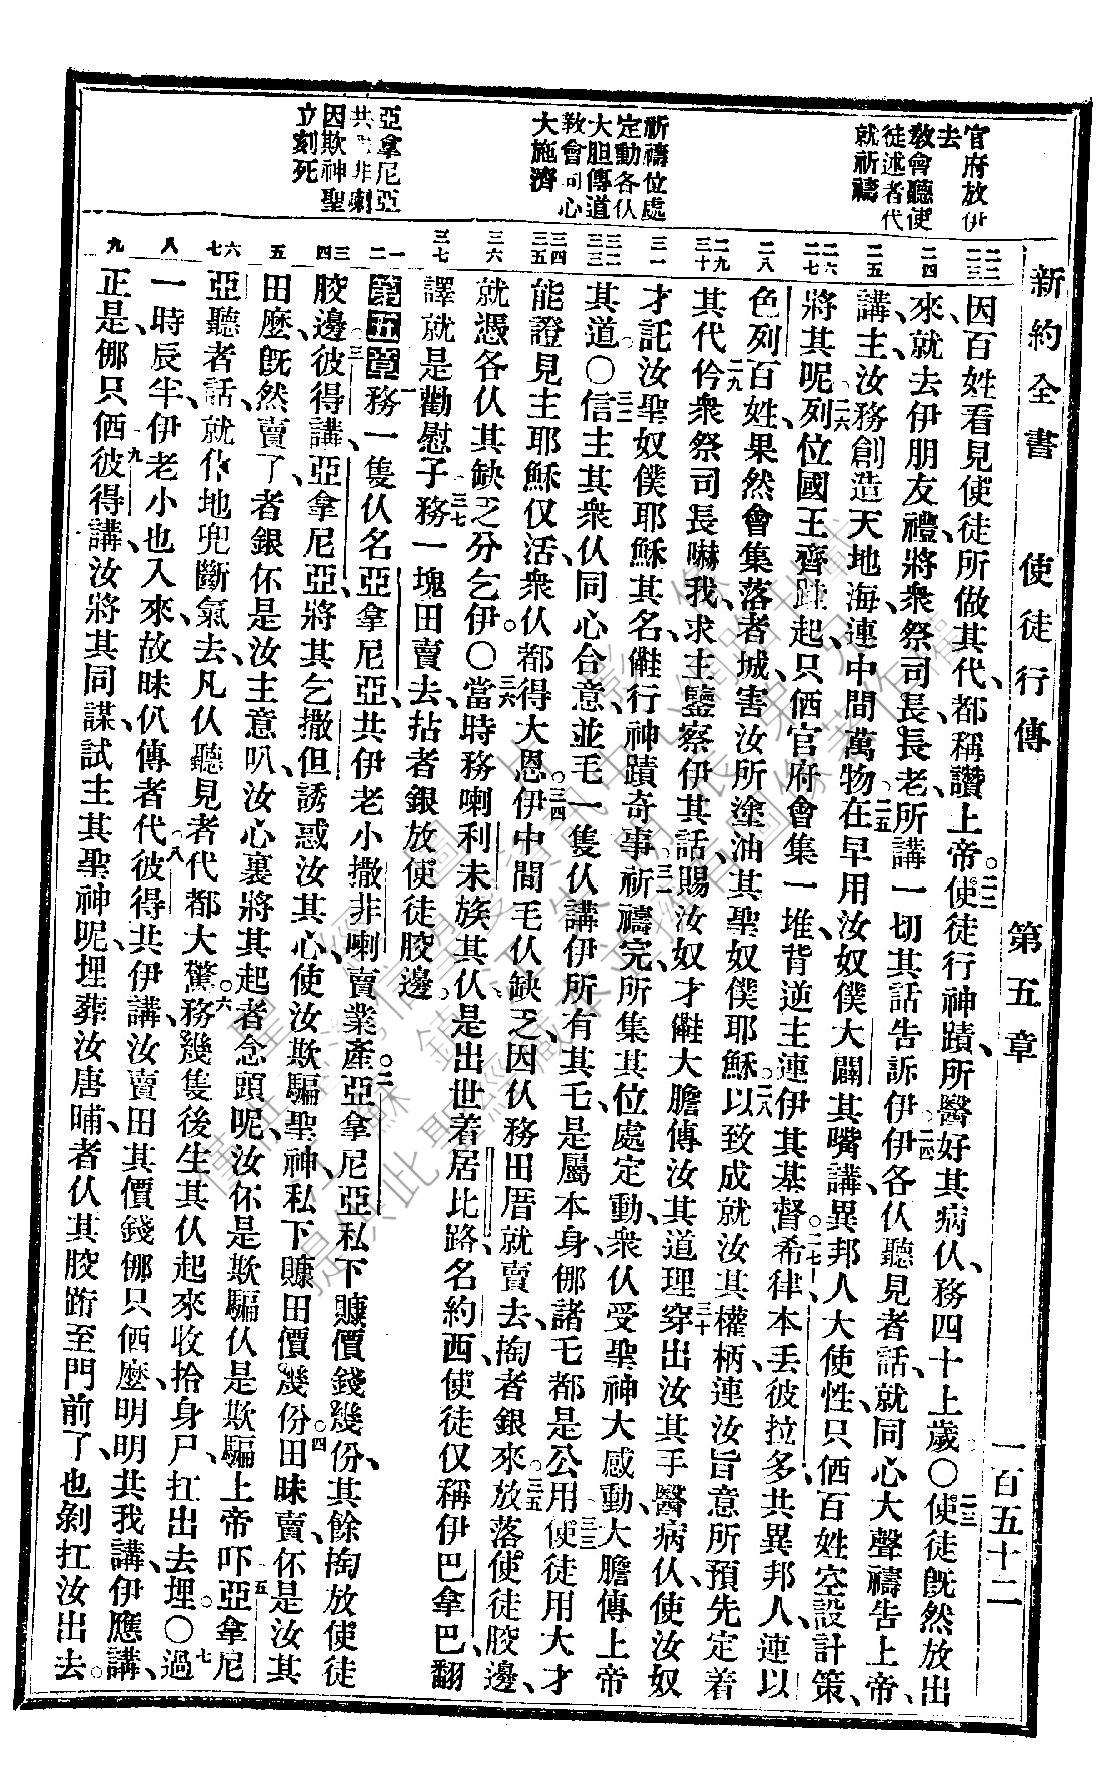 新約全書 使徒行傳 第五章 一百五十二
官府放伊
去
教會聽使
徒述者代
就祈禱
祈禱位處
定動各仈
大胆傳道
教會同心
大施濟
亞拿尼亞
共撒非喇
因欺神聖
立刻死
二二 二三
二四
二五
二六 二七
二八
二九 三十
三一
三二 三三
三四 三五
三六
三七
一 二
三 四
五
六 七
八
九
因百姓看見使徒所做其代、都稱讚上帝。二二使徒行神蹟所醫好其病仈、務四十上歲〇二三使徒旣然放出
來、就去伊朋友禮、將衆祭司長長老所講一切其話告訴伊。二四伊各仈聽見者話、就同心大聲禱告上帝、
講、主、汝務創造天地海、連中間萬物。二五在早用汝奴僕大闢其嘴講、異邦人大使性只値百姓空設計策、
二六將其呢、列位國王齊跬起、只値官府會集一堆、背逆主連伊其基督。二七希律本丟彼拉多共異邦人、連以
色列百姓、果然會集落者城、害汝所塗油其聖奴僕耶穌。二八以致成就汝其權柄連汝旨意所預先定着
其代。二九伶衆祭司長嚇我、求主鑒察伊其話、賜汝奴才㑹大膽傳汝其道理、三十穿出汝其手、醫病仈、使汝奴
才託汝聖奴僕耶穌其名、㑹行神蹟奇事。三一祈禱完、所集其位處定動、衆仈受聖神大感動、大膽傳上帝
其道。〇三二信主其衆仈、同心合意、並毛一隻仈講伊所有其乇是屬本身、㑚諸乇都是公用。三三使徒用大才
能證見主耶穌仅活、衆仈都得大恩。三四伊中間毛仈缺乏、因仈務田厝就賣去、掏者銀來、三五放落使徒骹邊、
就憑各仈其缺乏分乞伊。〇三六當時務喇利未族其仈、是出世着居比路、名約西、使徒仅稱伊巴拿巴、翻
譯就是勸慰子、三七務一塊田賣去、拈者銀放使徒骹邊。
第五章 一務一隻仈名亞拿尼亞、共伊老小撒非喇賣業產。二亞拿尼亞私下賺價錢幾份、其餘掏放使徒
骹邊。三彼得講、亞拿尼亞、將其乞撒但誘惑汝其心、使汝欺騙聖神、私下賺田價幾份。四田昧賣、伓是汝其
田麼、旣然賣了、者銀伓是汝主意叭、汝心裏將其起者念頭呢、汝伓是欺騙仈、是欺騙上帝吓。五亞拿尼
亞聽者話、就仆地兜斷氣去、凡仈聽見者代都大驚。六務幾隻後生其仈起來收拾身尸、扛出去埋。〇七過
一時辰半、伊老小也入來、故昧仈傳者代。八彼得共伊講、汝賣田其價錢㑚只値麼、明明共我講、伊應講、
正是㑚只値。九彼得講、汝將其同謀試主其聖神呢、埋葬汝唐晡者仈其骹跡至門前了、也剝扛汝出去。